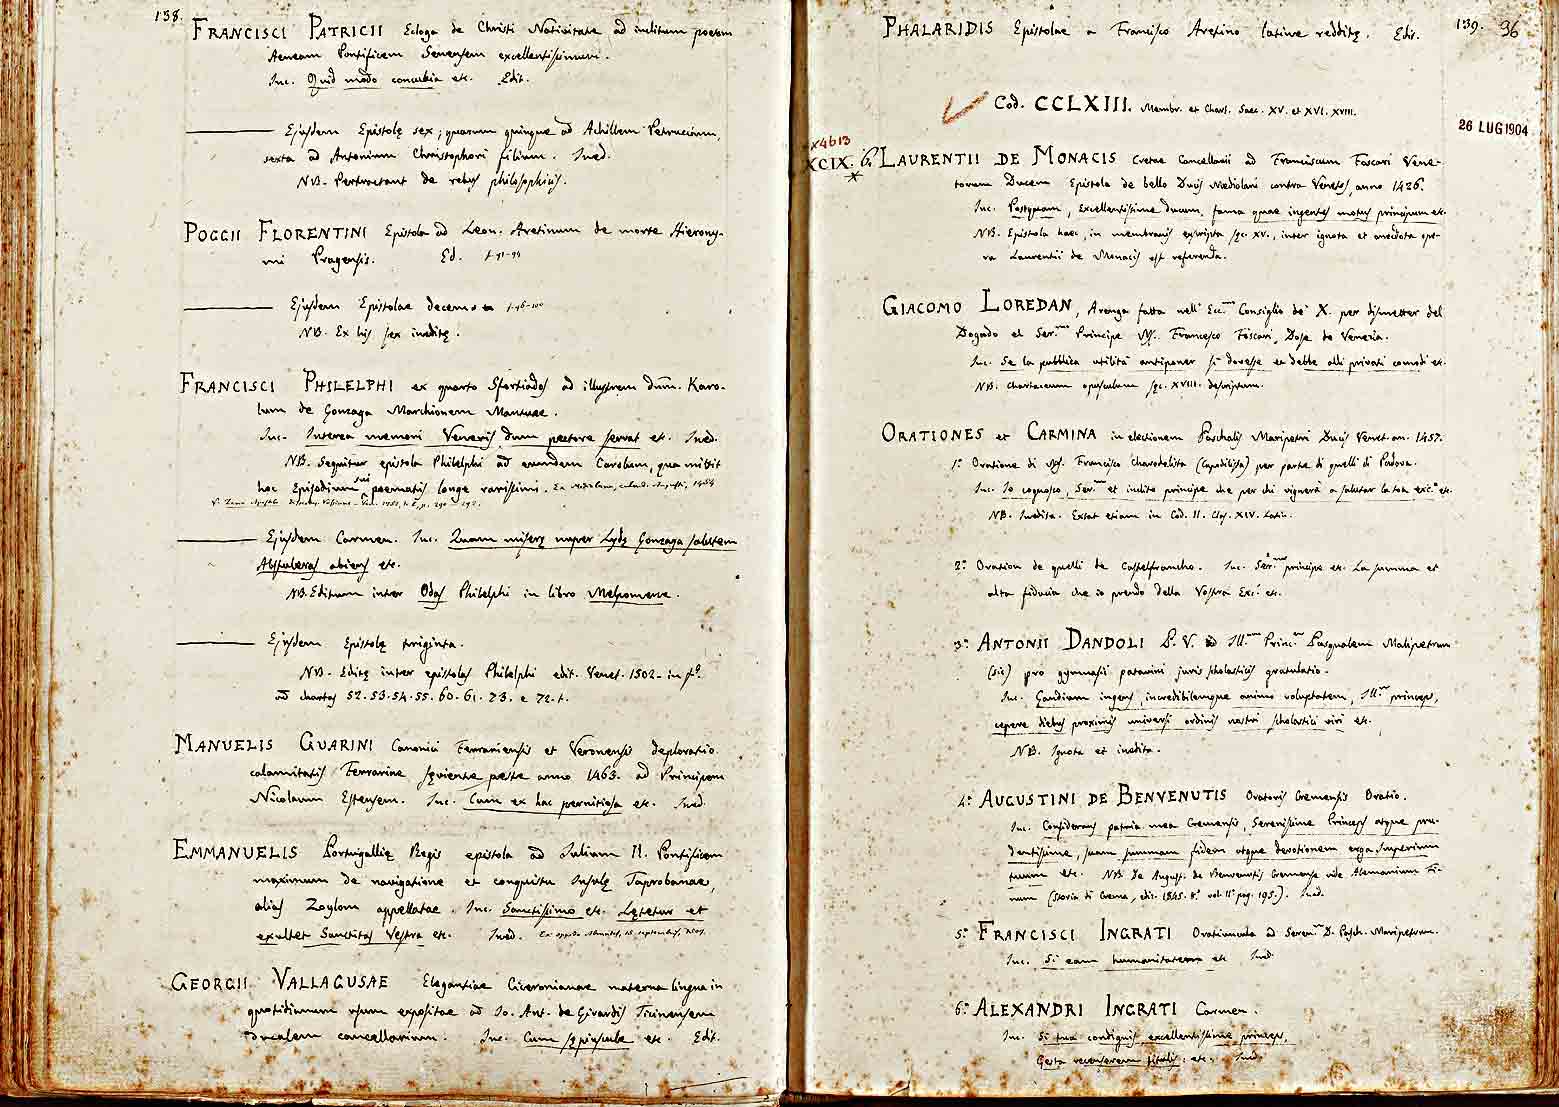 138.
FRANCISCI PATRICII Ecloga de Christi Nativitate ad inclitum poetam
Aeneam Pontificem Senensem excellentissimum.
Inc. Quid modo concubia etc. Edit.
Ejusdem Epistolę sex; quarum quinque ad Achillem Petrucium,
sexta ad Antonium Christophori filium. Ined.
NB. Pertractant de rebus philosophicis.
POGGII FLORENTINI Epistola ad Leon. Aretinum de morte Hierony-
mi Pragensis. Ed. f. 91-94
Ejusdem Epistolae decem f. 96-100
NB. Ex his sex ineditę.
FRANCISCI PHILELPHI ex quarto Sfortiados ad illustrem dūm. Karo-
lum de Gonzaga Marchionem Mantuae.
Inc. Interea memori Veneris dum pectore servat etc. Ined.
NB. Sequitur epistola Philelphi ad eumdem Carolum, qua mittit
hoc Episodium sui poematis longe rarissimi. Ex Mediolano, calend. Augusti, 1454
Ejusdem Carmen. Inc. Quam miserę nuper Lydę Gonzaga salutem
Abstuleras abiens etc.
NB. Editum inter Odas Philelphi in libro Melpomene.
Ejusdem Epistolę triginta.
NB. Editę inter epistolas Philelphi edit. Venet. 1502- in fº.
ad chartas 52. 53. 54. 55. 60. 61. 73. e 72. t.
MANUELIS GUARINI Canonici Ferrariensis et Veronensis deploratio
calamitatis Ferrariae sęviente peste anno 1463. ad Principem
Nicolaum Estensem. Inc. Cum ex hac pernitiosa etc. Ined.
EMMANUELIS Portugallię Regis epistola ad Iulium II. Pontificem
maximum de navigatione et conquista Insulę Taprobanae,
alias Zoylon appellatae. Inc. Sanctissimo etc. Lętetur et
exultet Sanctitas Vestra etc. Ined.
GEORGII VALLAGUSAE Elegantiae Ciceronianae materna lingua in
quotidianum usum expositae ad Jo. Ant. de Girardis Ticinensem
ducalem cancellarium. Inc. Cum sępiuscule etc. Edit.
PHALARIDIS Epistolae a Francisco Aretino latine redditę. Edit.
139. 96
Cod. CCLXIII. Membr. et Chart. Saec. XV. et XVI. XVIII.
26 LUG 1904
x4613
XCIX. 6. LAURENTII DE MONACIS Cretae Cancellarii ad Franciscum Foscari Vene-
torum Ducem Epistola de bello Ducis Mediolani contra Venetos, anno 1426.
Inc. Postquam, excellentissime ducum, fama quae ingentes motus principum etc.
NB. Epistola haec, in membranis exscripta sęc. XV., inter ignota et anecdota ope-
ra Laurentii de Monacis est referenda.
GIACOMO LOREDAN, Arenga fatta nell' Ecc.mo Consiglio de' X. per dismetter del
Dogado el Ser.mo Principe Ms. Francesco Foscari, Dose de Venezia.
Inc. Se la pubblica utilità antiponer si dovesse ea debbe alli privati comodi etc.
NB. Chartaceum opusculum sęc. XVIII. descriptum.
ORATIONES et CARMINA in electionem Paschalis Maripetri Ducis Venet. an. 1457.
1.º Oratione di Ms. Francesco Charodelista (Capodilista) per parte di quelli di Padova.
Inc. Io cognosco, Ser.mo et inclito principe che per chi vignerà a salutar la toa exc.a etc.
NB. Inedita. Extat etiam in Cod. II. Clas. XIV. Latin.
2.º Oration de quelli de Castelfrancho. Inc. Ser.mo principe etc. La summa et
alta fiducia che io prendo della Vostra Exc.a etc.
3.º ANTONII DANDOLI P. V. ad Ill.mum Princ.m Pasqualem Malipetrum
(sic) pro gymnasii patavini juris scholasticis gratulatio.
Inc. Gaudium ingens, incredibilemque animo voluptatem, Ill.me princeps,
cepere diebus proximis universi ordinis nostri scholastici viri etc.
NB. Ignota et inedita.
4.º AUGUSTINI DE BENVENUTIS Oratoris Cremensis Oratio.
Inc. Considerans patria mea Cremensis, Serenissime Princeps atque pru-
dentissime, suam summam fidem atque devotionem erga Imperium
tuum etc. NB. De August. de Benvenutis Cremense vide Alemanium Fi-
num (Storia di Crema, edit. 1845. 8.º vol. IIº pag. 195). Ined.
5.º FRANCISCI INGRATI Oratiuncula ad Serenm D. Pasch. Maripetrum.
Inc. Si eam humanitatem etc Ined.
6.º ALEXANDRI INGRATI Carmen.
Inc. Si tua condignis, excellentissime princeps,
Gesta recenserem titulis: etc. Ined.